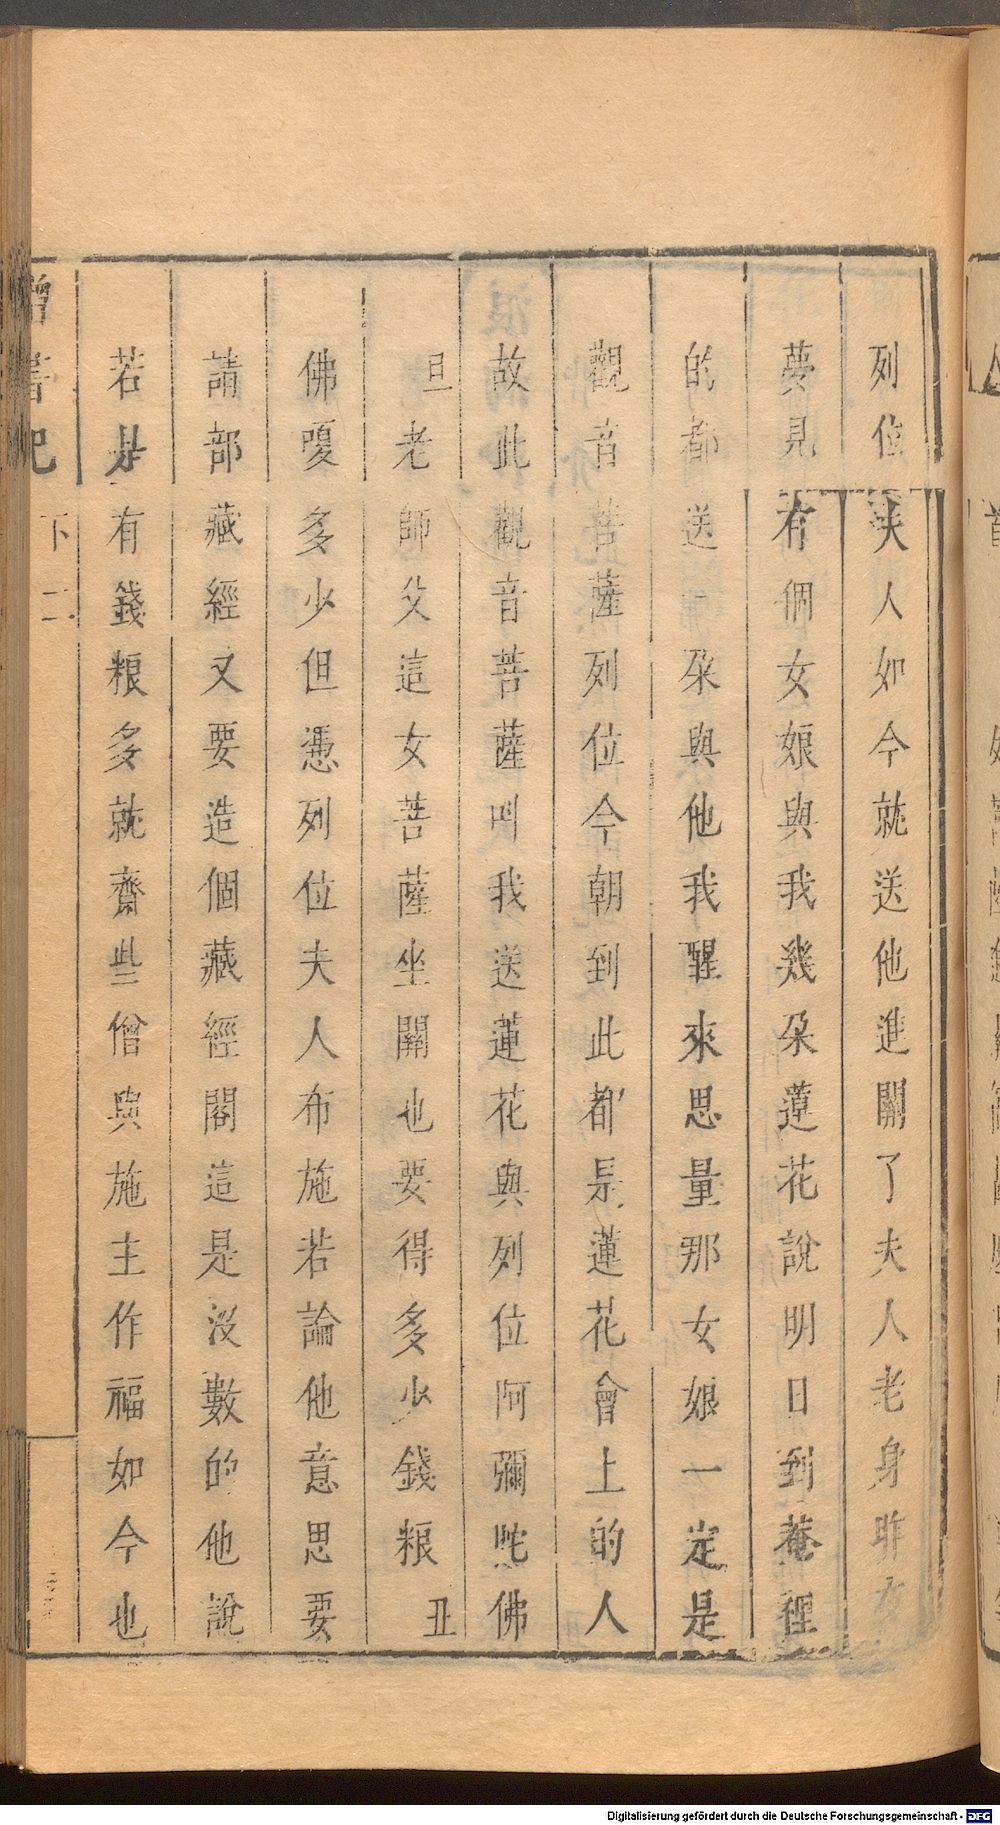 列位夫人如今就送他進關了夫人老身昨夜
夢見有個女娘與我幾朵蓮花說明日到菴裡
的都送一朵與他我醒來思量那女娘一定是
觀音菩薩列位今朝到此都是蓮花會上的人
故此觀音菩薩叫我送蓮花與列位阿彌陀佛
旦老師父這女菩薩坐關也要得多少錢粮丑
佛嗄多少但憑列位夫人布施若論他意思要
請部藏經又要造個藏經閣這是沒數的他說
若是有錢粮多就齋些僧與施主作福如今也
下 二
Digitalisierung gefördert durch die Deutsche Forschungsgemeinschaft - DFG